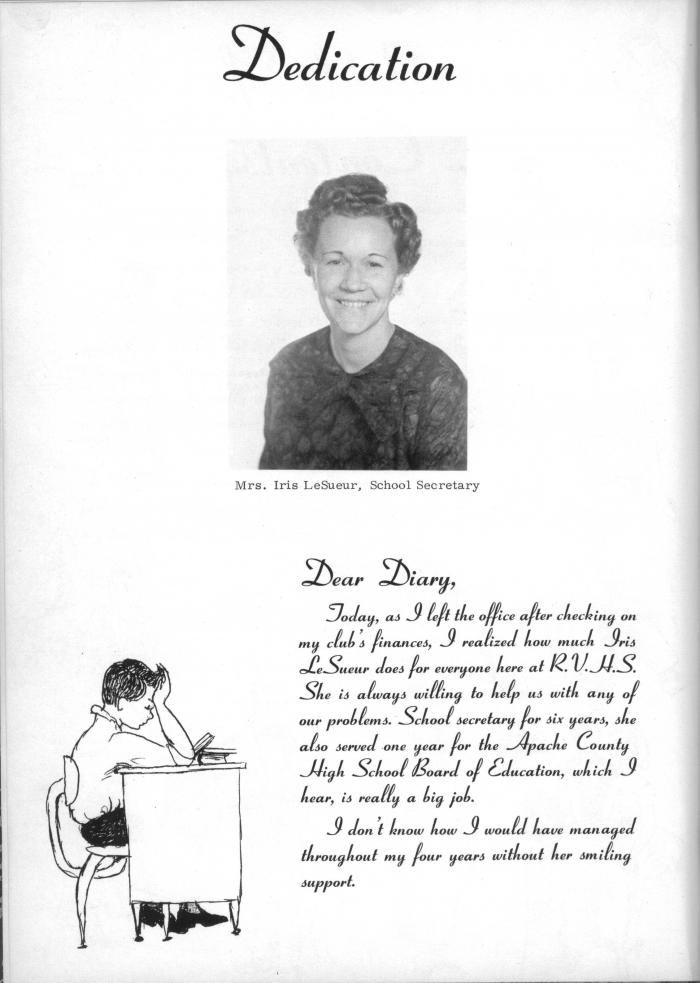 Dedication
Mrs. Iris LeSueur, School Secretary
Dear Diary,
Today, as I left the office after checking on
my club's finances, I realized how much Iris
LeSueur does for everyone here at R.V.H.S.
She is always willing to help us with any of
our problems. School secretary for six years, she
also served one year for the Apache County
High School Board of Education, which I
hear, is really a big job.
I don't know how I would have managed
throughout my four years without her smiling
support.